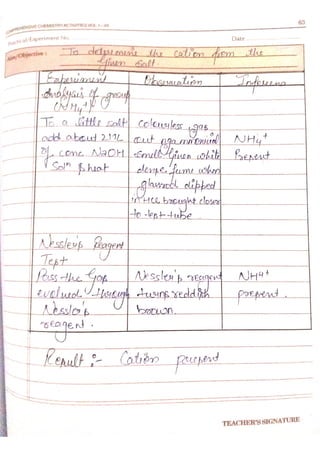 COMPREHENSIVE CHEMISTRY ACTIVITIES VOL. I - XII
63
Practical/Experiment No.
Date
Aim/Objective :
To determine the cation from the
given salt
Experiment
Observation
Inference
Analysis of group
(NH4+)
To a little salt
add about 2ML
of conc NaOH
Soln & heat
Colourless gas
out
smell given white
dense fume when
glassrod dipped
in HCL brought closer
to test-tube
NH4+
Present
Nessler's Reagent
Test
Pass the Gas
evolved through
Nessler's
reagent.
Nessler's reagent
turns reddish
brown.
NH4+
present.
Result :- Cation present
TEACHER'S SIGNATURE